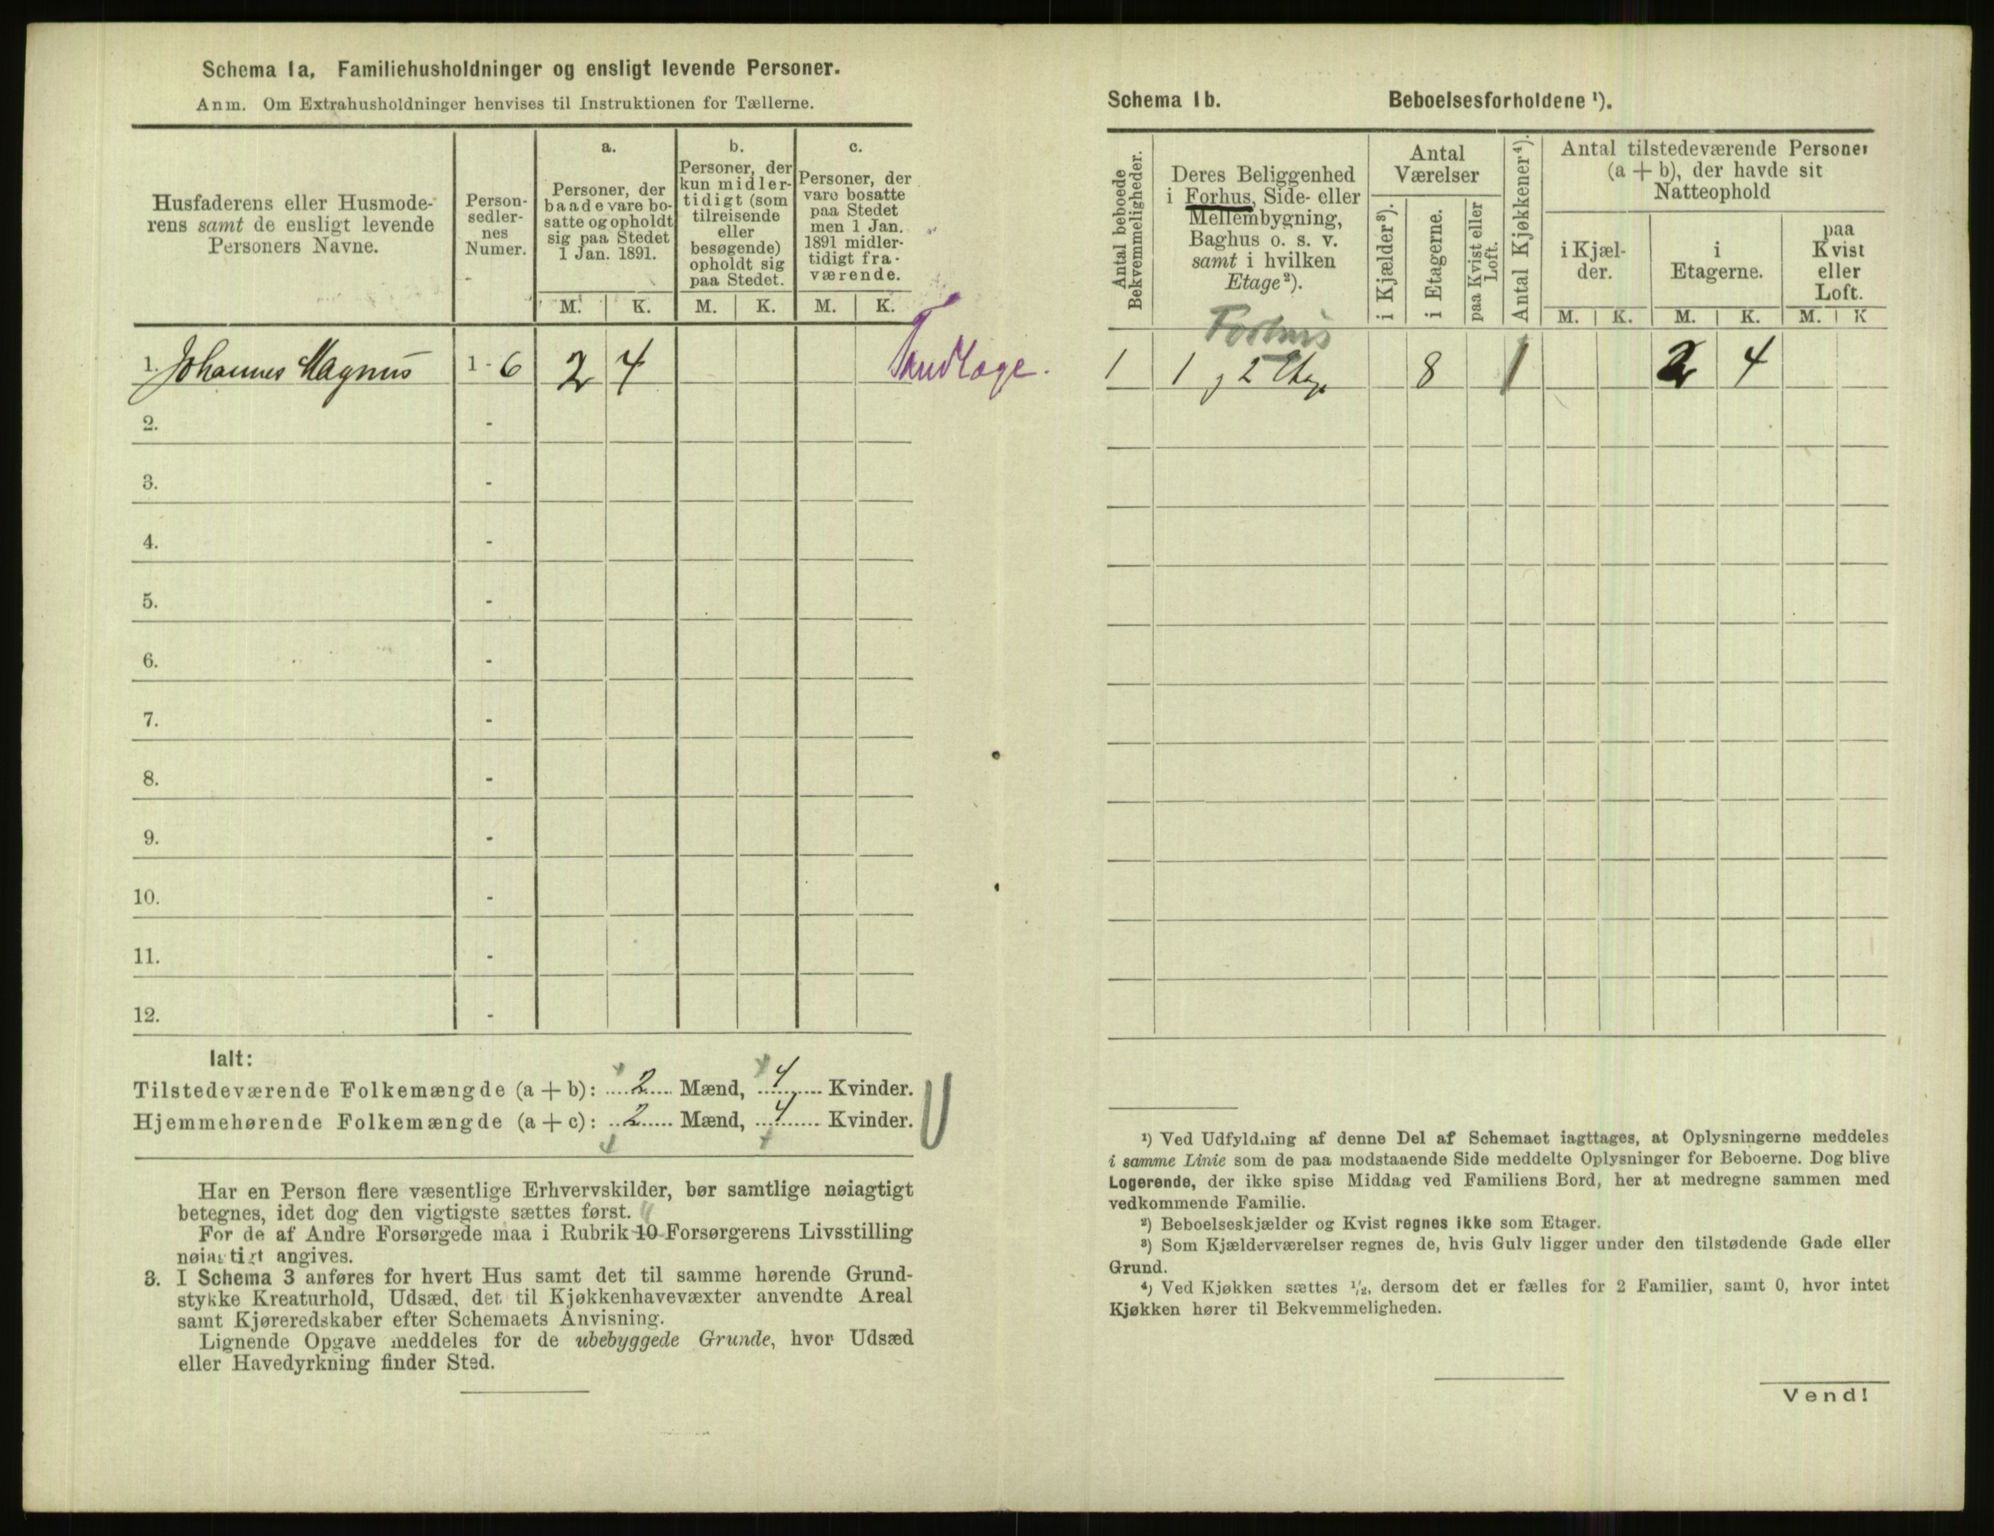 Schema 1a, Familiehusholdninger og ensligt levende Personer.
Anm. Om Extrahusholdninger henvises til Instruktionen for Tællerne.
Husfaderens eller Husmode-
rens samt de ensligt levende
Personers Navne.
Person-
sedler-
nes
Numer.
a.
Personer, der
baade vare bo-
satte og opholdt
sig paa Stedet
1 Jan. 1891.
b.
Personer, der
kun midler-
tidigt (som
tilreisende
eller
besøgende)
opholdt sig
paa Stedet.
c.
Personer, der
vare bosatte
paa Stedet
men 1 Jan.
1891 midler-
tidigt fra-
værende.
M. K. M. K. M. K.
1. Johannes Magnus 1-6 2 4 Tandlæge.
2. -
3. -
4. -
5. -
6. -
7. -
8. -
9. -
10. -
11. -
12. -
Ialt:
Tilstedeværende Folkemængde (a + b): 2 Mænd, 4 Kvinder.
Hjemmehørende Folkemængde (a + c): 2 Mænd, 4 Kvinder.
Har en Person flere væsentlige Erhvervskilder, bør samtlige nøiagtigt
betegnes, idet dog den vigtigste sættes først.
For de af Andre Forsørgede maa i Rubrik 10 Forsørgerens Livsstilling
nøiagtigt angives.
3. I Schema 3 anføres for hvert Hus samt det til samme hørende Grund-
stykke Kreaturhold, Udsæd, det til Kjøkkenhavevæxter anvendte Areal
samt Kjøreredskaber efter Schemaets Anvisning.
Lignende Opgave meddeles for de ubebyggede Grunde, hvor Udsæd
eller Havedyrkning finder Sted.
Schema 1b. Beboelsesforholdene ¹).
Antal beboede
Bekvemmeligheder.
Deres Beliggenhed
i Forhus, Side- eller
Mellembygning,
Baghus o. s. v.
samt i hvilken
Etage ²).
Antal
Værelser
i Kjælder ³).
i Etagerne.
paa Kvist eller
Loft.
Antal Kjøkkener ⁴).
Antal tilstedeværende Personer
(a + b), der havde sit
Natteophold
i Kjæl-
der.
i
Etagerne.
paa
Kvist
eller
Loft.
M. K. M. K. M. K
Forhus
1 1 og 2 Etage 8 1 2 4
¹) Ved Udfyldning af denne Del af Schemaet iagttages, at Oplysningerne meddeles
i samme Linie som de paa modstaaende Side meddelte Oplysninger for Beboerne. Dog blive
Logerende, der ikke spise Middag ved Familiens Bord, her at medregne sammen med
vedkommende Familie.
²) Beboelseskjælder og Kvist regnes ikke som Etager.
³) Som Kjælderværelser regnes de, hvis Gulv ligger under den tilstødende Gade eller
Grund.
⁴) Ved Kjøkken sættes ½, dersom det er fælles for 2 Familier, samt 0, hvor intet
Kjøkken hører til Bekvemmeligheden.
Vend!